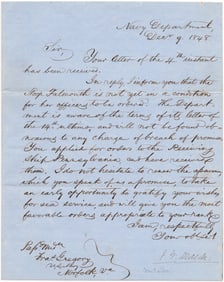 Navy Department,
Decr 9, 1848.
Sir,
Your letter of the 4th instant
has been received.
In reply I inform you that the
Ship Falmouth is not yet in a condition
for her officers to be ordered. The Depart-
ment is aware of the terms of its letter of
the 14th ultimo, and will not be found ob-
noxious to any charge of breach of promise.
You applied for orders to the Receiving
Ship Pennsylvania and have received
them. I do not hesitate to renew the assurance
which you speak of as a promise, to take
an early opportunity to gratify your wishes
for sea service, and will give you the most
favorable orders appropriate to your rank.
I am, respectfully
Your obt
Gregory
U.S. Navy
Norfolk, Va